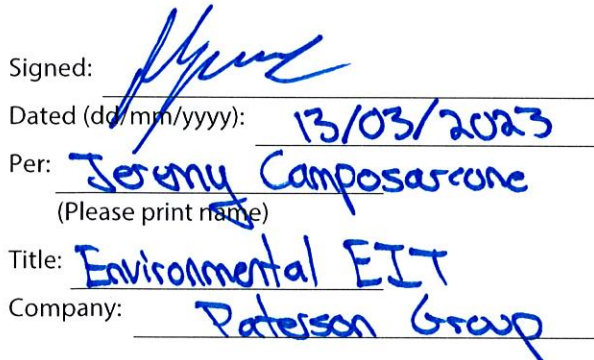 Signed:
Dated (dd/mm/yyyy): 13/03/2023
Per: Jeremy Camposarcone
(Please print name)
Title: Environmental EIT
Company: Paterson Group